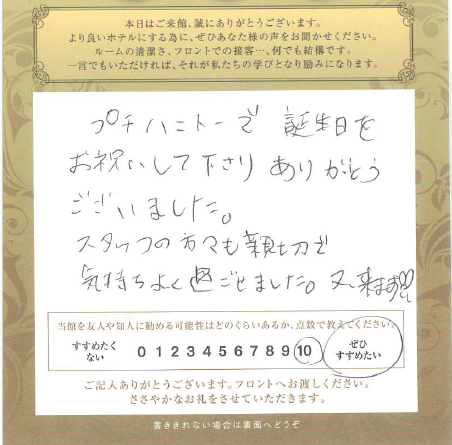 本日はご来館、誠にありがとうございます。
より良いホテルにする為に、ぜひあなた様の声をお聞かせください。
ルームの清潔さ、フロントでの接客…、何でも結構です。
一言でもいただければ、それが私たちの学びとなり励みになります。
プチハニトーで 誕生日を
お祝いして下さり ありがとう
ございました。
スタッフの方々も親切で
気持ちよく過ごせました。又、来ます♡
当館を友人や知人に勧める可能性はどのくらいあるか、点数で教えてください。
すすめたくない 0 1 2 3 4 5 6 7 8 9 10 ぜひすすめたい
ご記入ありがとうございます。フロントへお渡しください。
ささやかなお礼をさせていただきます。
書ききれない場合は裏面へどうぞ